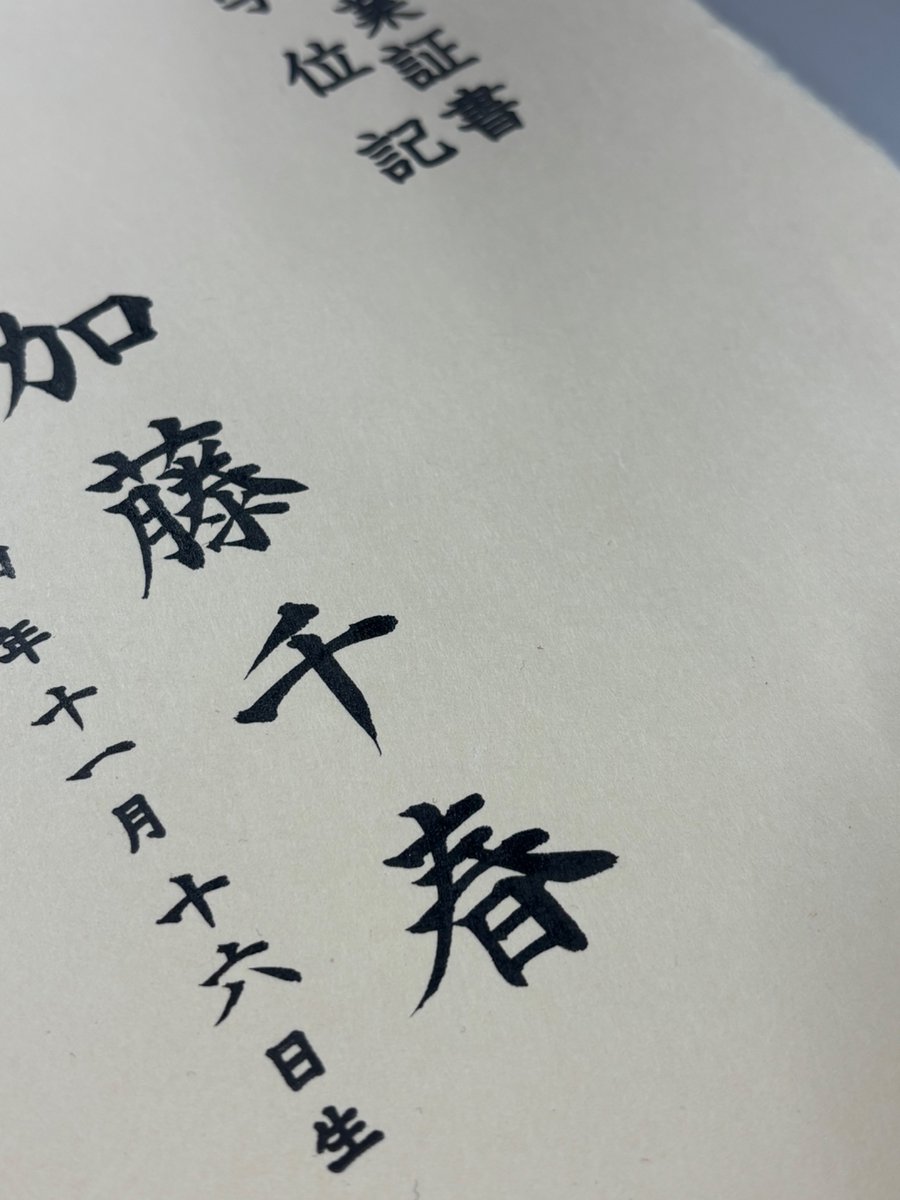 業証書
位記
加藤千春
年十一月十六日生